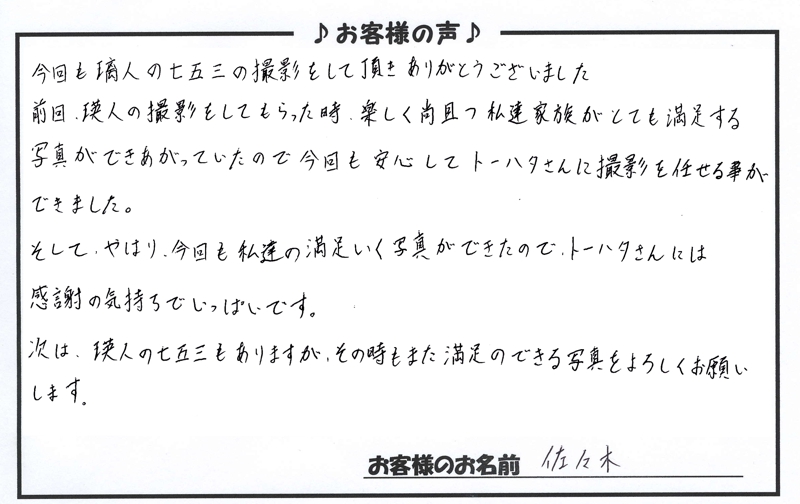 ♪お客様の声♪
今回も璃人の七五三の撮影をして頂きありがとうございました
前回、瑛人の撮影をしてもらった時、楽しく尚且つ私達家族がとても満足する
写真ができあがっていたので今回も安心してトーハタさんに撮影を任せる事が
できました。
そして、やはり、今回も私達の満足いく写真ができたので、トーハタさんには
感謝の気持ちでいっぱいです。
次は、瑛人の七五三もありますが、その時もまた満足のできる写真をよろしくお願い
します。
お客様のお名前 佐々木